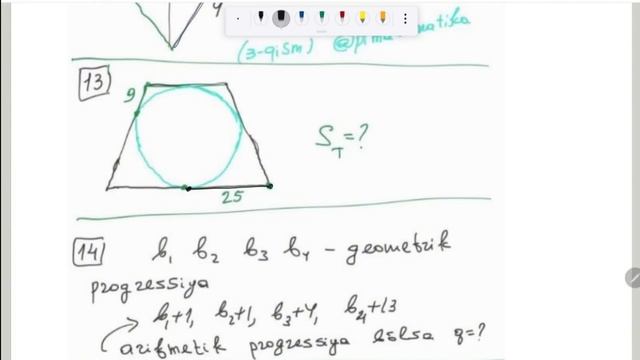 4
(3-qism) @
13
9
S_T = ?
25
14 b₁ b₂ b₃ b₄ – geometrik
progressiya
b₁+1, b₂+1, b₃+4, b₄+13
arifmetik progressiya bo'lsa q=?